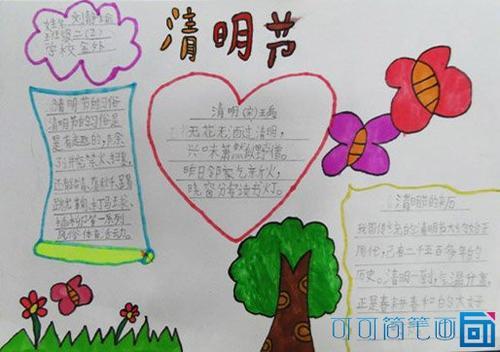 清明节
姓名:刘静瑜
班级二(2)
学校
清明节的习俗
清明节的习俗是
是有趣的,除
了讲究禁火、扫墓,
还有踏青、荡秋千、蹴
鞠、打马球、
插柳等一系列
风俗体育活动。
清明(宋)王禹
无花无酒过清明,
兴味萧然似野僧。
昨日邻家乞新火,
晓窗分与读书灯。
清明节的来历
我国传统的清明节大约始于
周代,已有二千五百多年的
历史。清明一到,气温升高,
正是春耕春种的大好
可可简笔画